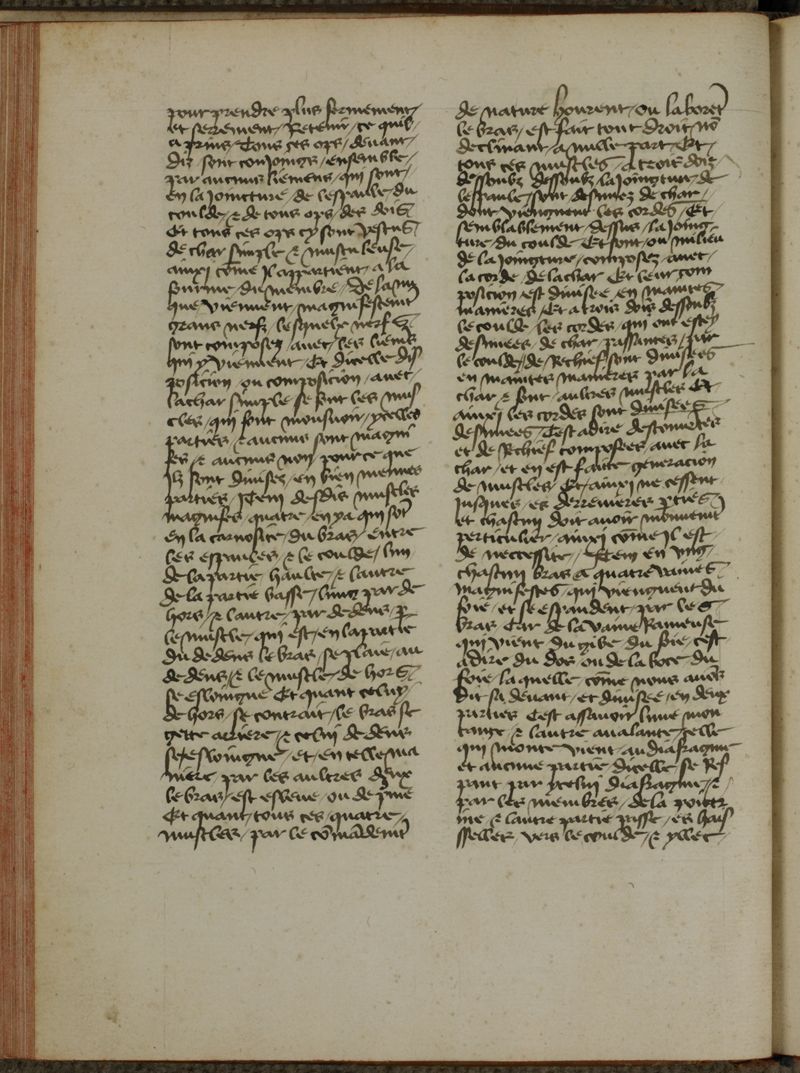 pour prendre plus fermement /
et serrement / Retenir / ce quil
a prins / Tous ces ops / deuant /
diz / sont conioings / ensemble /
par aucuns liemens / qui sont /
en la ioincture / de lespaule / du
coulde / & de tous ops / des dois
Et tous ces ops cy sont vestus
de char simple & musculeuse /
ainxi come Il appartient / a la
fourme / du membre / De la nu
que viennent / magnifestemt
grans nerfz / lesquelx nerfz
sont composez / auec / les liens
qui y viennent / Et dicelle dis
posicion / ou composicion / auec /
la char simple / se font les mus
cles / qui font mouuoir / ycelles
parties / & aucuns sont magni
fes / & aucuns non / pour ce que
Ilz sont diuisez / en bien menues
parties / Item desdis muscles
magnifes / quatre / en ya qui sot
en la carnosite / du bras / entre
les espaules / & le coulde / lun
de la partie haulte / & lautre
de la partie basse / lung par de
hors / & lautre / par dedens / p
le muscle / qui est / en la partie
du dedens le bras / se plaie / au
dedens / & le muscle / de hors /
se eslongne Et quant celuy
de hors / se contrait / le bras se
gette arriere / & celui dedens
se eslongne / et / en telle ma
niere par les aultres deux
le bras / est esleue / ou deprime
Et quant / tous ces / quatre /
muscles / par le comademt
de nature heurent / ou laboret
le bras / est fait tout droit / no
declinant / a nulle part / Et /
tous ces muscles / a trois dois
dessoubz la Ioingture / de
lespaule / sont desnuez de char /
dont viengnent les cordes / Et
semblablement / dessus / la Ioing
ture / du coulde Et sont / ou milieu
de la Ioingture / composez / auec /
la corde / de la char Et leur com
posicion / est diuisee / en maintes
manieres / Et a trois dois dessoubz
le coulde / les cordes / qui ont este
desnuees / de char / passantes / par
le coulde / de Rechief / sont diuisees
en maintes manieres par la
char & font / aultres muscles Et
ainxi les cordes sont diuisees
desnuees / Cest adire descouuertes
et de Rchief composees / auec la
char / et en est faicte generacion
de muscles / Et / ainxi ne cessent
Iusques / es derrenieres pties
et chascun doit auoir mouuemt
perticulier / ainxi come Il est
de neccessite / Item en vng
chascun bras / a quatre vaines
magnifestes / qui viengnent du
foie / et se espandent / par les
bras Car de la vaine Rameuse
qui vient du gibe du foie / cest
adire du dos ou de la boce du
foie la quelle come nous auos
dit sa deuant / et diuisee / en deux
parties Cest assauoir lune mon
tante & lautre aualante / celle
qui monte vient / au diafragme
et aucune partie dicelle se Res
pant par ycelui diafragme / &
par les membres / de la poitri
ne & lautre partie passe / es hais
sselles / vers le coulde / & yllec /